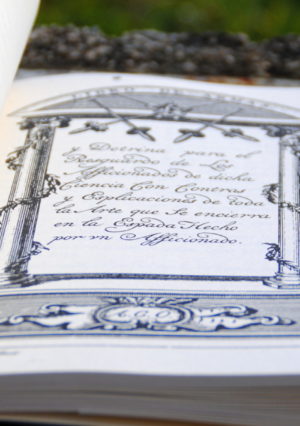 LIBRO DE ARMAS
y Dotrina para el
Resguardo de Los
Afficionados de dicha
Ciencia Con Contras
y Explicaciones de toda
la Arte que Se encierra
en la Espada Hecho
por vn Afficionado.